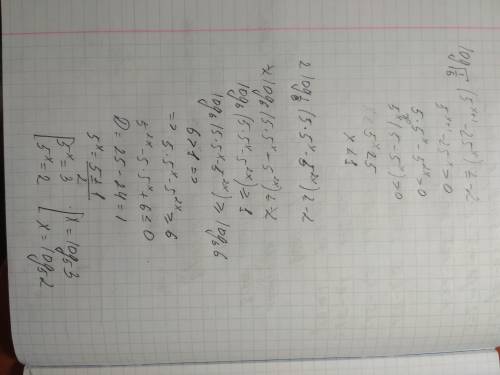 log√1/6 (5ˣ⁺¹ - 25ˣ) ≤ -2
5ˣ⁺¹ - 25ˣ > 0
5·5ˣ - 5²ˣ > 0
5ˣ(5-5ˣ) > 0
5ˣ<5
x<1
-2 log₆ (5·5ˣ - 5²ˣ) ≤ -2
log₆ (5·5ˣ - 5²ˣ) ≥ 1
log₆ (5·5ˣ - 5²ˣ) ≥ log₆6
6>1 =>
=> 5·5ˣ - 5²ˣ ≥ 6
5²ˣ - 5·5ˣ + 6 ≤ 0
D = 25 - 24 = 1
5ˣ = (5±1)/2
[5ˣ = 3 [x = log₅3
[5ˣ = 2 [x = log₅2